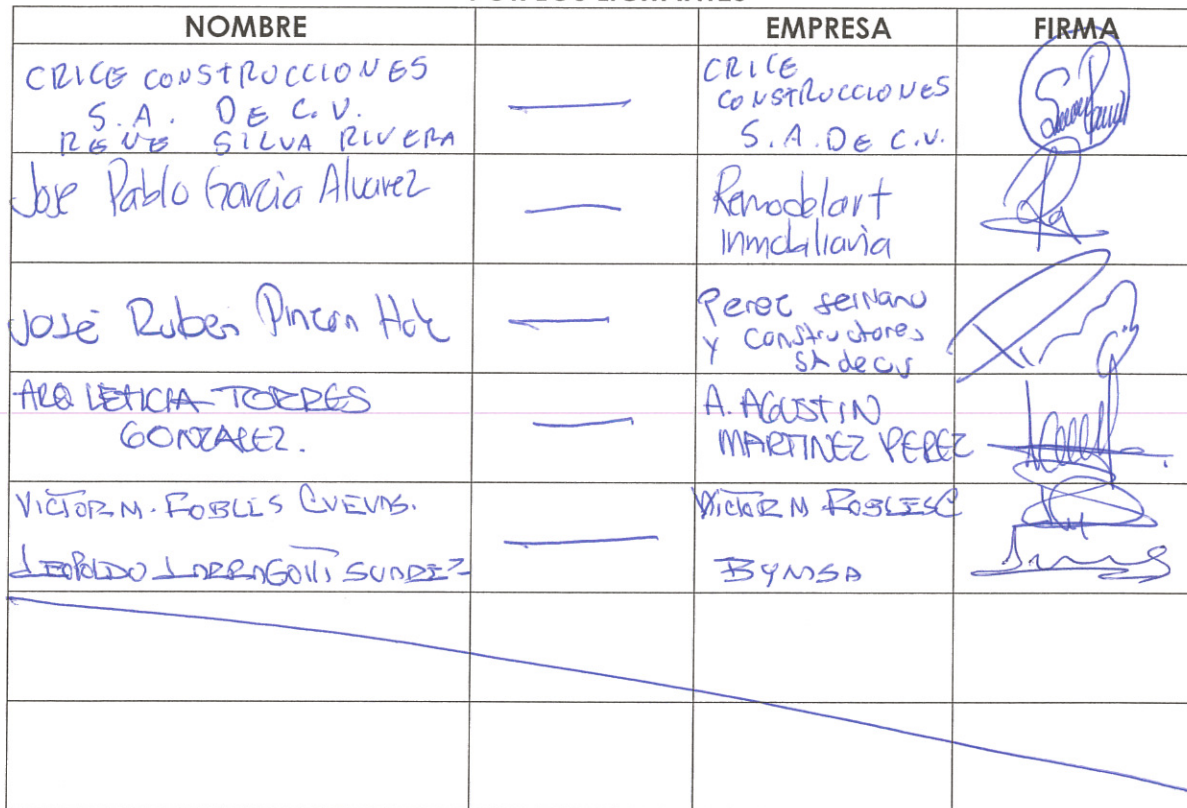 NOMBRE EMPRESA FIRMA
CRICE CONSTRUCCIONES
S.A. DE C.V.
RENE SILVA RIVERA
CRICE
CONSTRUCCIONES
S.A. DE C.V.
Jose Pablo Garcia Alvarez
Remodelart
Inmobiliaria
José Ruben Pincon
Perez
y Constructores
SA de CV
ARQ LETICIA TORRES
GONZALEZ.
A. AGUSTIN
MARTINEZ PEREZ
VICTOR M. ROBLES CUEVAS.
VICTOR M ROBLES C
LEOPOLDO LARRAGOITI SUAREZ
BYMSA